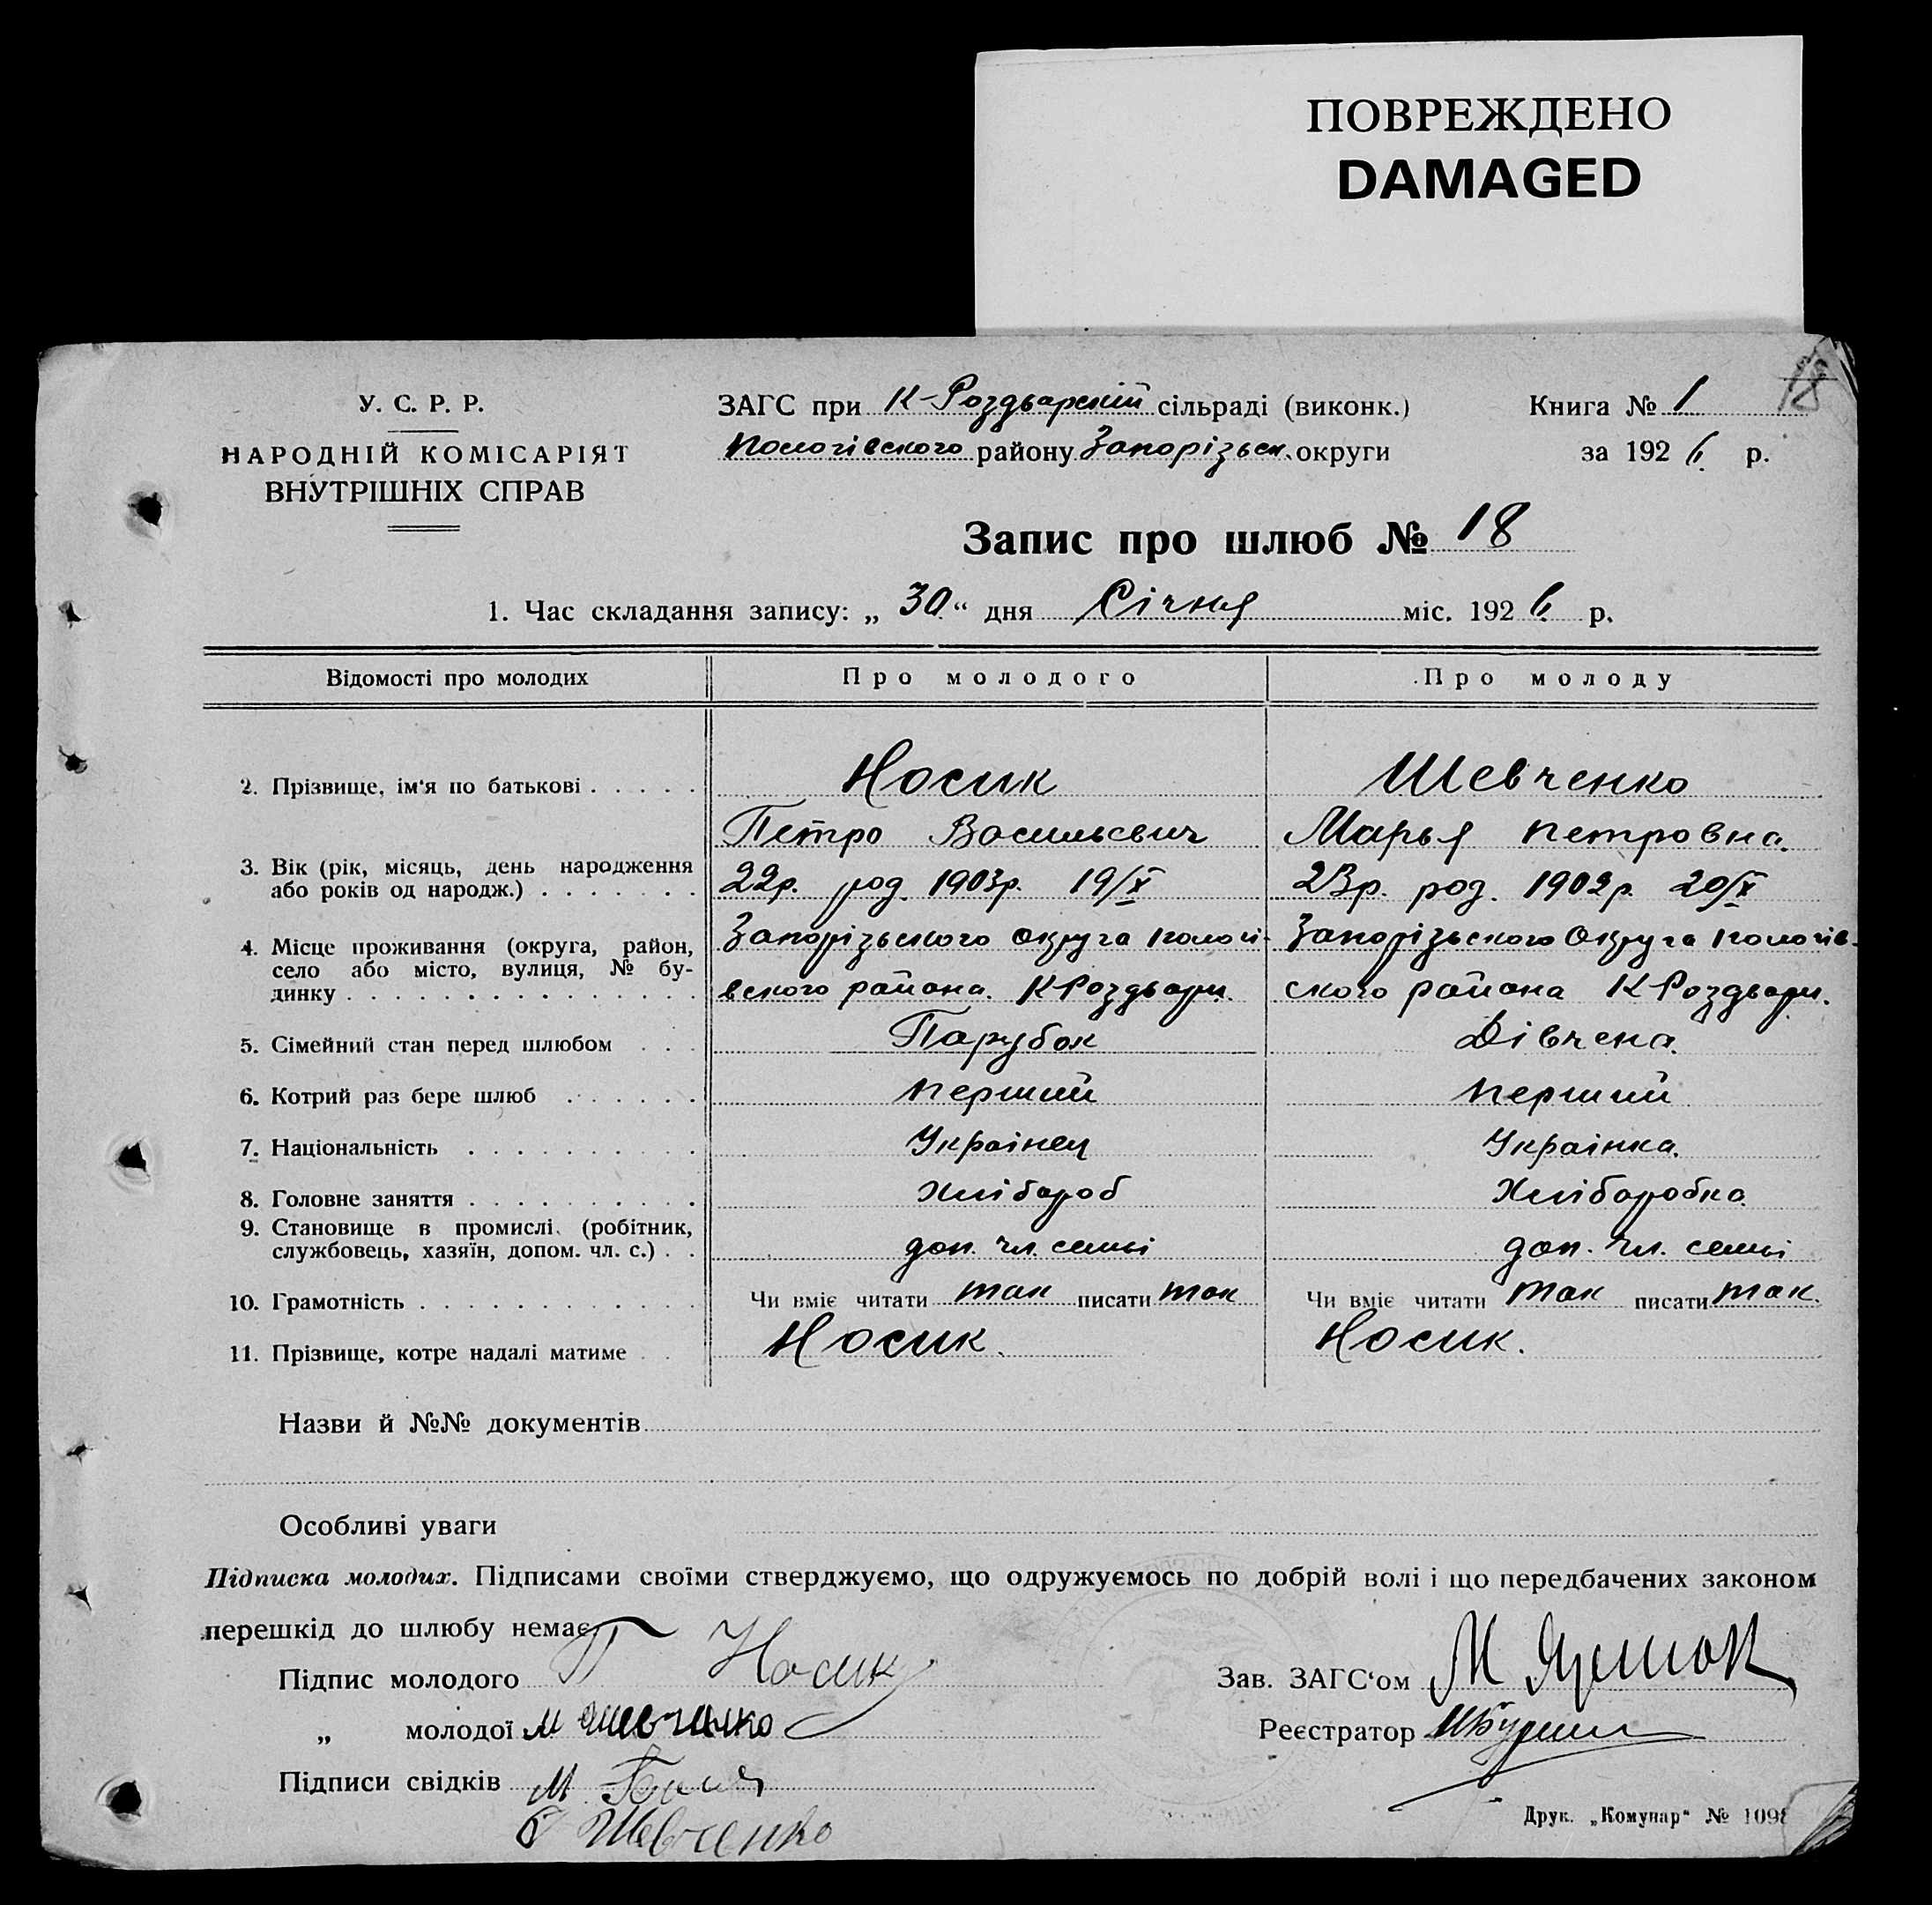 ПОВРЕЖДЕНО
DAMAGED
18
У. С. Р. Р.
НАРОДНІЙ КОМІСАРІЯТ
ВНУТРІШНІХ СПРАВ
ЗАГС при К-Роздварский сільраді (виконк.)
Пологівского району Запорізьск. округи
Книга № 1
за 1926 р.
Запис про шлюб № 18
1. Час складання запису: „30“ дня Січня міс. 1926 р.
Відомості про молодих Про молодого Про молоду
2. Прізвище, ім'я по батькові . . . . . Носик Шевченко
Петро Васильевич Марья Петровна.
3. Вік (рік, місяць, день народження 22р. род. 1903р. 19/X 23р. род. 1902р. 20/X
або років од народж.) . . . . . . .
4. Місце проживання (округа, район, Запорізьского округа пологі- Запорізьского Округа пологів-
село або місто, вулиця, № бу- вского района. К Роздвори. ского района К Роздвори.
динку . . . . . . . . . . . . . . .
5. Сімейний стан перед шлюбом . . . Парубок Дівчена.
6. Котрий раз бере шлюб . . . . . . перший перший
7. Національність . . . . . . . . . . Украінец Украінка.
8. Головне заняття . . . . . . . . . . Хлібороб Хліборобка.
9. Становище в промислі (робітник,
службовець, хазяїн, допом. чл. с.) . . доп. чл. семьі доп. чл. семьі
10. Грамотність . . . . . . . . . . . . Чи вміє читати так писати так Чи вміє читати так писати так.
11. Прізвище, котре надалі матиме . . Носик. Носик.
Назви й №№ документів
Особливі уваги
Підписка молодих. Підписами своїми стверджуємо, що одружуємось по добрій волі і що передбачених законом
перешкід до шлюбу немає
Підпис молодого П Носик
„ молодої М Шевченко
Підписи свідків М
Шевченко
Зав. ЗАГС'ом М
Реєстратор
Друк. „Комунар“ № 1098